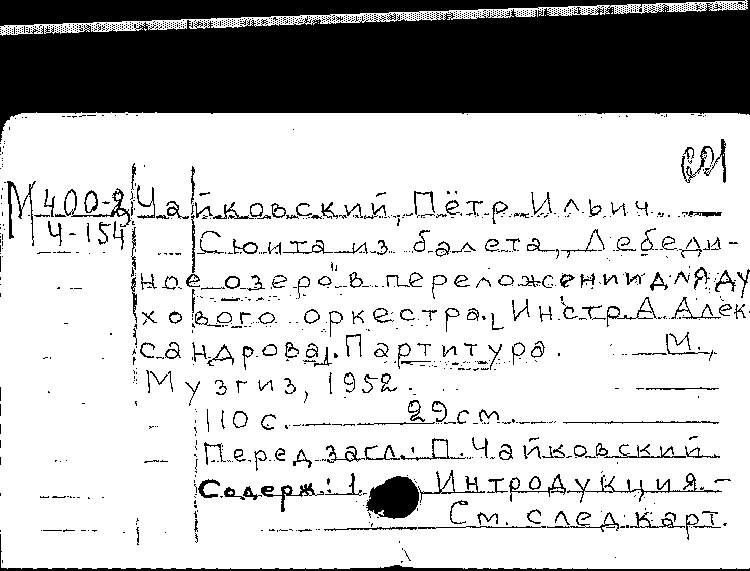 М 400-2
Ч-154
Чайковский, Пётр Ильич. —
Сюита из балета „Лебеди-
ное озеро" в переложении для ду
хового оркестра. [Инстр. А. Алек-
сандрова]. Партитура. М.,
Музгиз, 1952.
110 с. 29 см.
Перед загл.: П. Чайковский.
Содерж.: 1. Интродукция. -
См. след. карт.